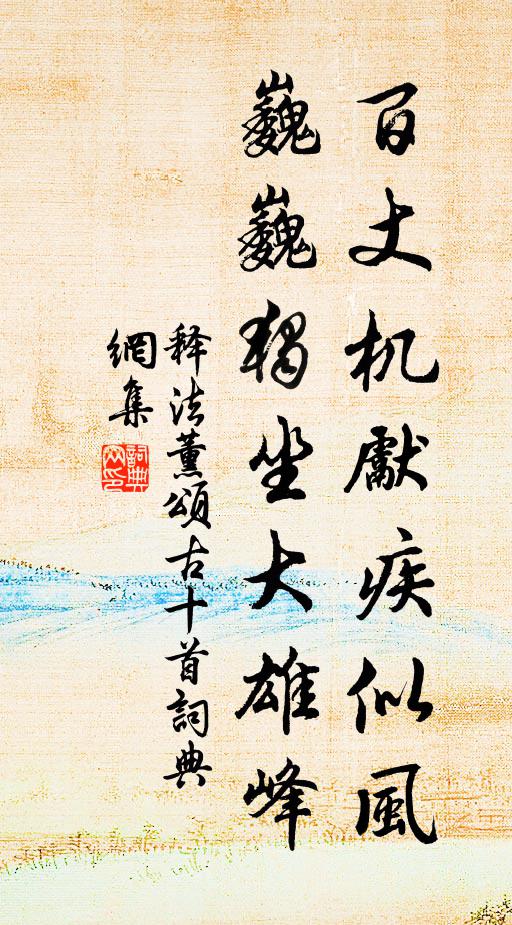 百丈机獻疾似風
巍巍獨坐大雄峰
释法薰頌古十首詞典
網集
詞典
网印